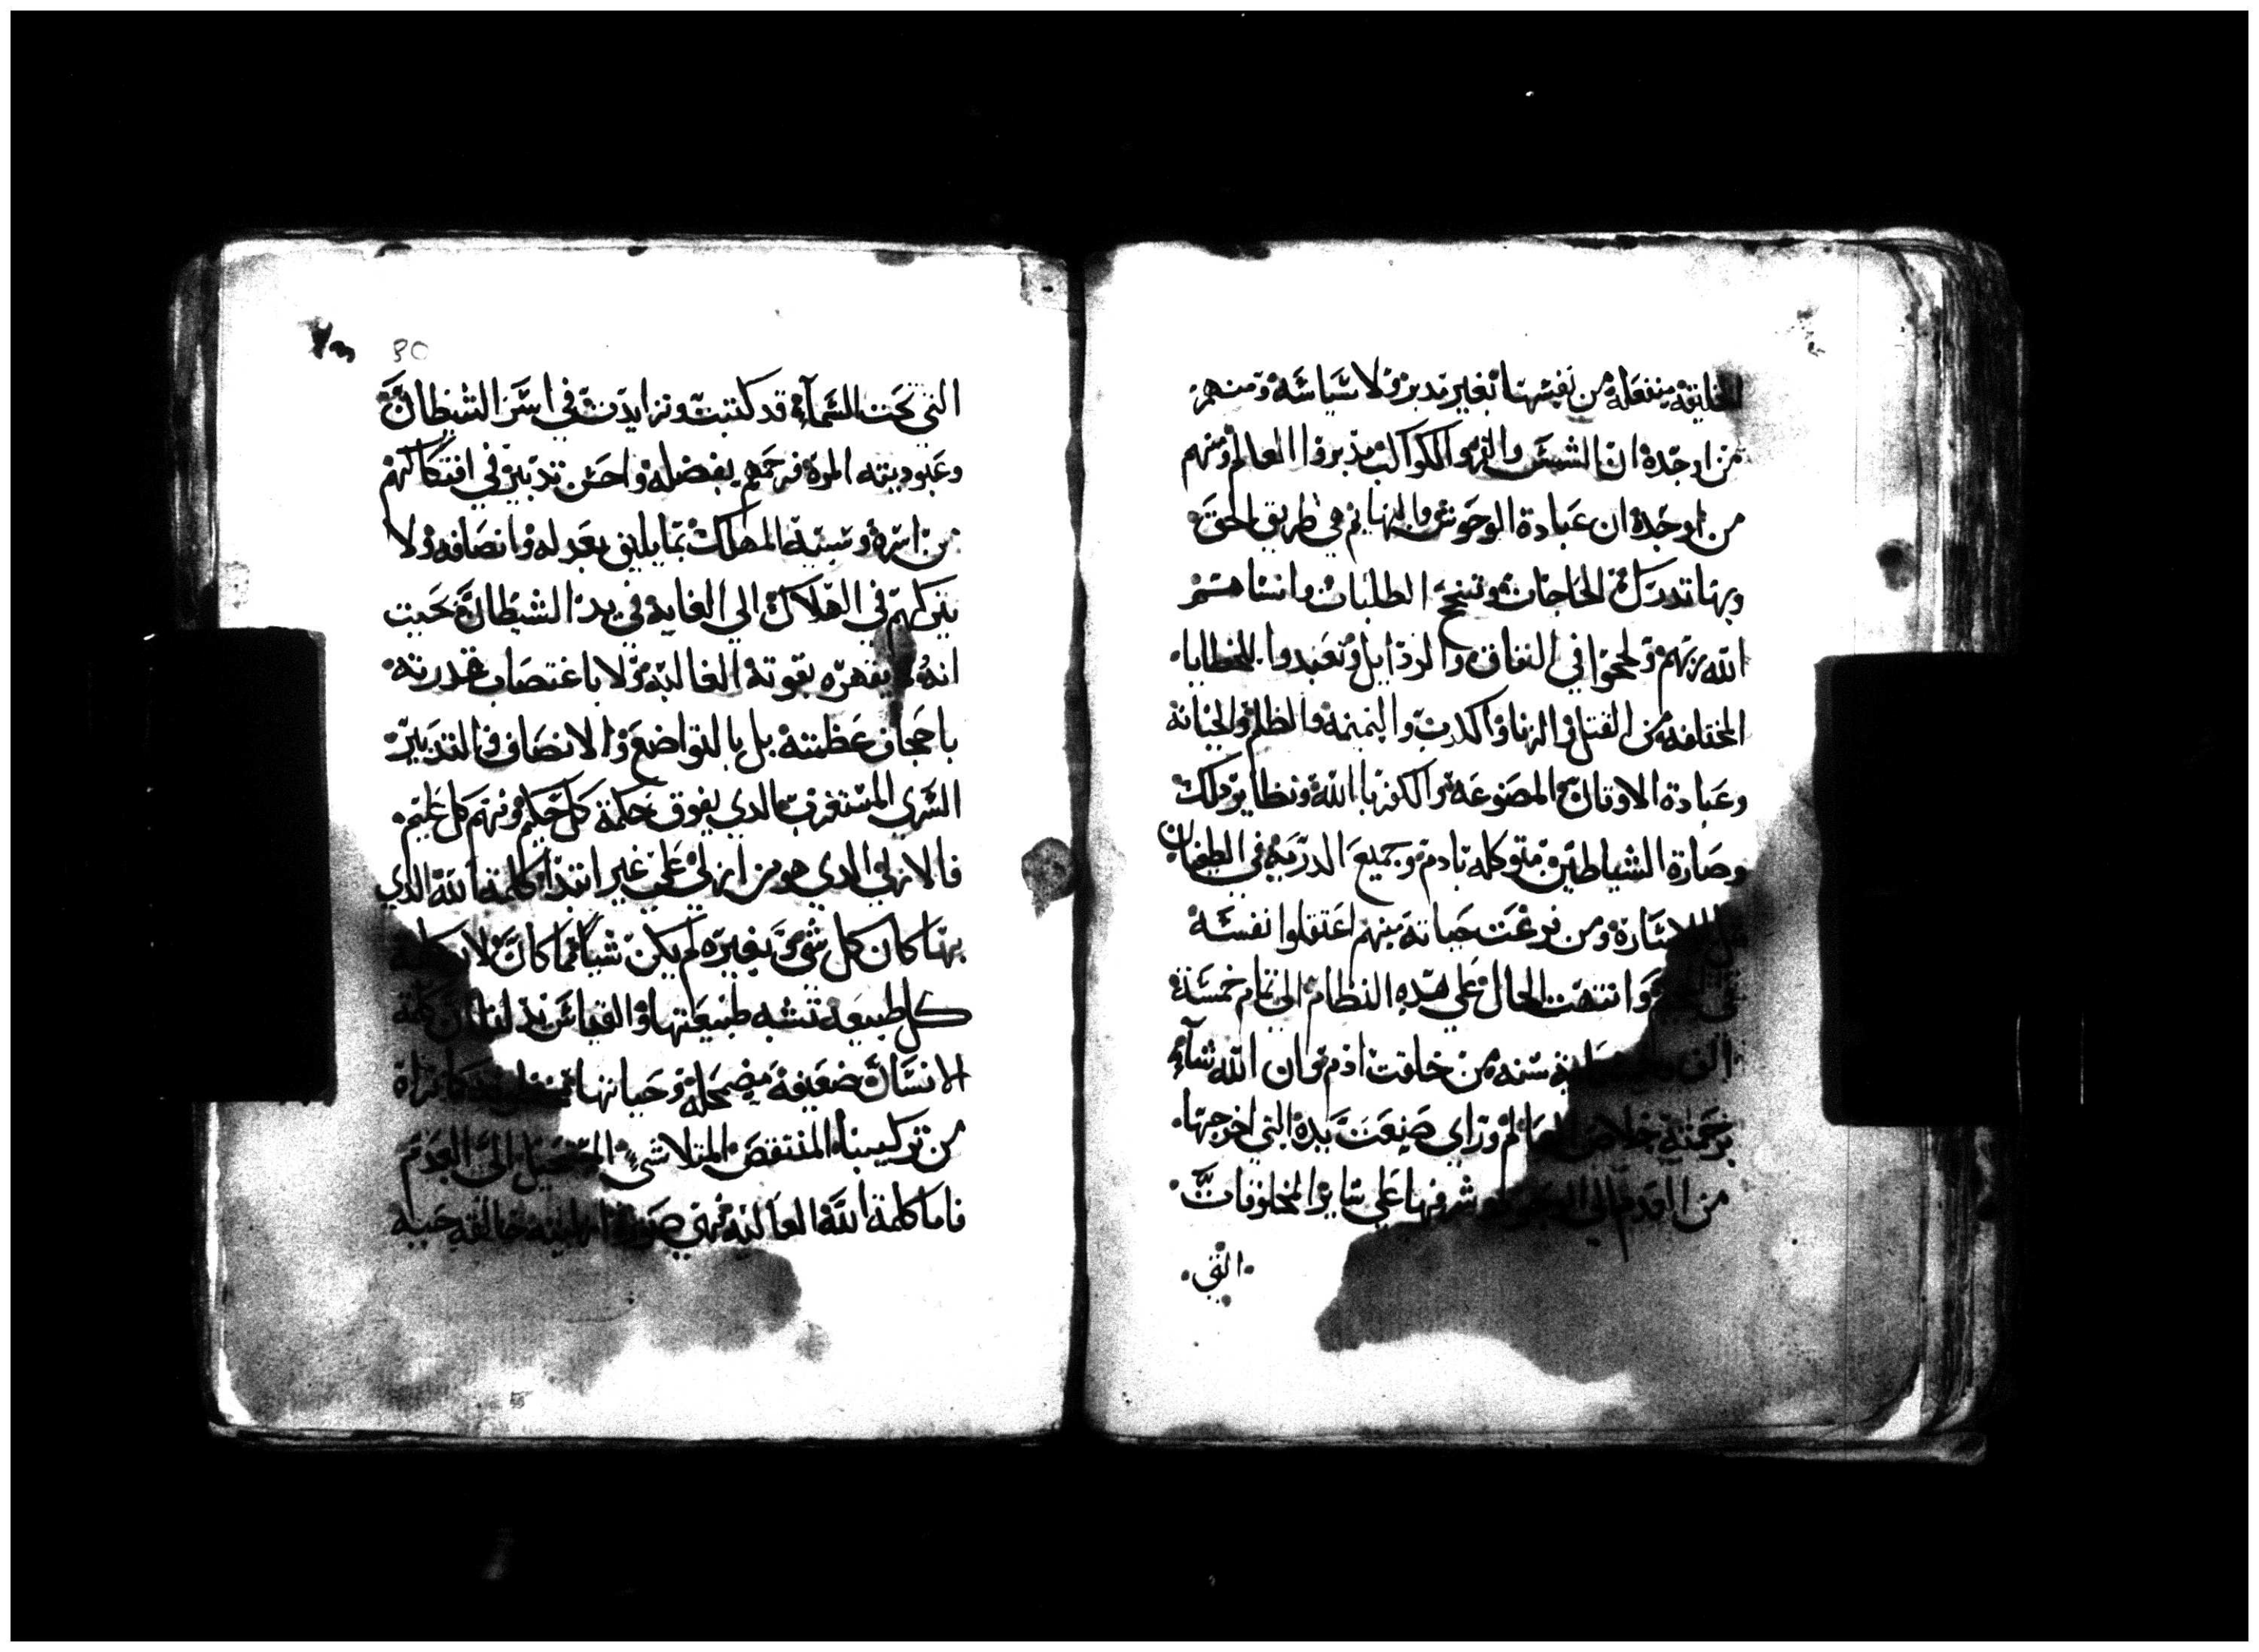 الخليقة منفعله من نفسها بغير مدبر ولا سياسة ومنهم
من اوجده ان الشمس والقمر والكواكب مدبروا العالم ومنهم
من اوجده ان عبادة الوحوش والبهايم هي طريق الحق
وبها تدرك الحاجات وتنجح الطلبات وانساهم
الله ربهم ولججوا في النفاق والرذايل وتعبدوا للخطايا
المختلفه من القتل والزنا والكدب والنميمه والظلم والخيانة
وعبادة الاوتان المصنوعة والكفر بالله ونظاير دلك
وصارة الشياطين متوكله بادم وجميع الدرية في الطغيان
ومن فرغت حياته منهم اعتقلوا نفسه
في وانتهت الحال على هده النظام الى تمام خمسة
الف سنه من خلقت ادم وان الله شاء
برحمته خلاص العالم وراي صنعت يده التي اخرجها
من العدم الي شرفها علي ساير المخلوقات
التي
30
التي تحت السماء قد كتبت وتزايدت في اسر الشيطان
وعبوديته المرة فرحمهم بفضله واحسن تدبير في افتكاكهم
من اسره وسبيه المهلك بما يليق بعدله وانصافه ولا
يتركهم في الهلاك الي الغاية في يد الشيطان بحيت
انه يقهره بقوته الغالبة ولا باغتصاب قدرته
باحجاف عظمته بل بالتواضع والانصاف والتدبير
السري المستغرب الدي يفوق حكمة كل حكيم وفهم كل عليم
فالازلي الدي هو من ازلي علي غير ابتدا كلمة الله الدي
بها كان كل شي وبغيره لم يكن شيا مما كان لان كلمة
كل طبيعه تشبه طبيعتها والقياس كلمة
الانسان ضعيفة مضمحلة وحياتها كما تراه
من تركيبنا المنتقض المتلاشي المستحيل الي العدم
فاما كلمة الله العالية فهي صورة الهية خالقه حييه